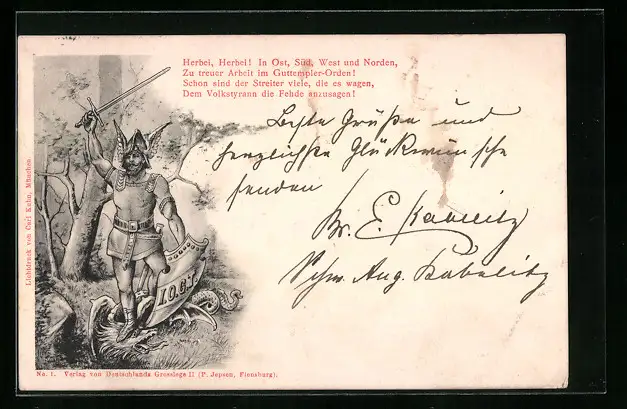 Herbei, Herbei! In Ost, Süd, West und Norden,
Zu treuer Arbeit im Guttempler-Orden!
Schon sind der Streiter viele, die es wagen,
Dem Volkstyrann die Fehde anzusagen!
Beste Grüße und
herzlichste Glückwünsche
senden
Br. E. Kabelitz
Schw. Aug. Kabelitz
I.O.G.T.
Lichtdruck von Carl Kuhn, München.
No. 1. Verlag von Deutschlands Grossloge II (P. Jepsen, Flensburg).